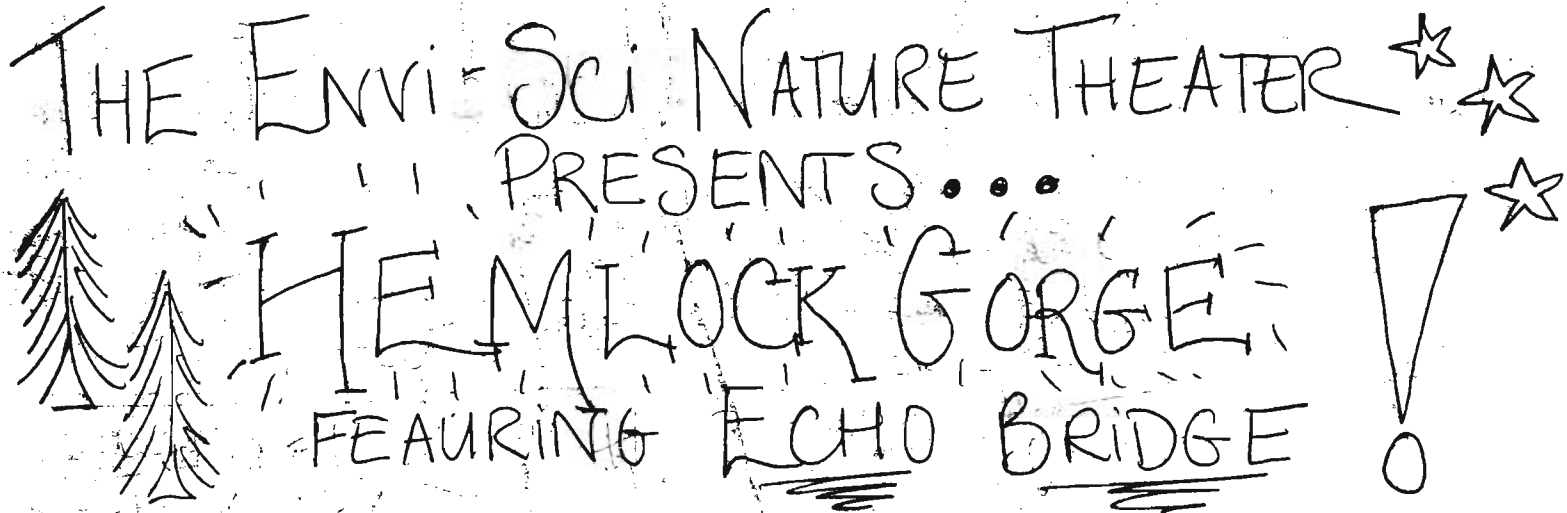 THE ENVi-SCi NATURE THEATER
PRESENTS...
HEMLOCK GORGE!
FEAURiNG ECHO BRiDGE